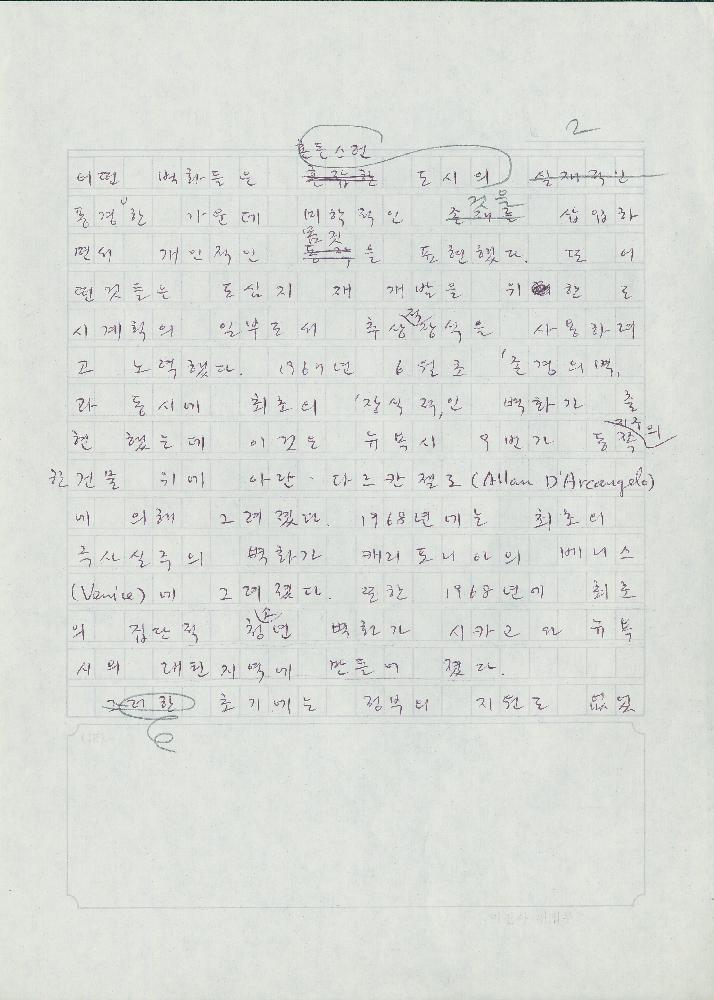 2
혼돈스런
어떤 벽화들은 혼잡한 도시의 실재적인
풍경한 가운데 미학적인 존재를 것을 삽입하
면서 개인적인 동작을 몸짓 표현했다. 또 어
떤것들은 도심지 재개발을 위한 도
시계획의 일부로서 추상적 장식을 사용하려
고 노력했다. 1967년 6월초 '존경의 벽'
과 동시에 최초의 '장식적'인 벽화가 출
현했는데 이것은 뉴욕시 9번가 동쪽의
한 건물 위에 아란·다르칸젤로(Allan D'Arcangelo)
에 의해 그려졌다. 1968년에는 최초의
극사실주의 벽화가 캐리포니아의 베니스
(Venice)에 그려졌다. 또한 1968년에 최초
의 집단적 청소년 벽화가 시카고와 뉴욕
시의 래틴지역에 만들어졌다.
그러한 초기에는 정부의 지원도 없었